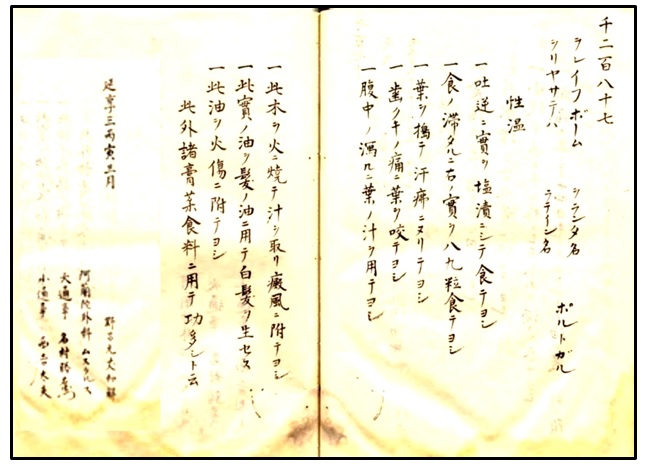 千二百八十七
ヲレイフボーム ヲランダ名
シリヤサテハ ラテイン名 ポルトガル
性温
一吐逆ニ實ヲ塩漬ニシテ食テヨシ
一食ノ滞タルニ右ノ實ヲ八九粒食テヨシ
一葉ヲ搗テ汗疿ニヌリテヨシ
一歯クキノ痛ニ葉ヲ咬テヨシ
一腹中ノ瀉ルニ葉ノ汁ヲ用テヨシ
一此木ヲ火ニ焼テ汁ヲ取リ癜風ニ附テヨシ
一此實ノ油ヲ髪ノ油ニ用テ白髪ヲ生セス
一此油ヲ火傷ニ附テヨシ
此外諸膏菜食料ニ用テ功多シト云
延享三丙寅三月
野呂元丈和解
阿蘭陀外科 ムスクルス
大通事 名村勝右衛門
小通事 西吉太夫